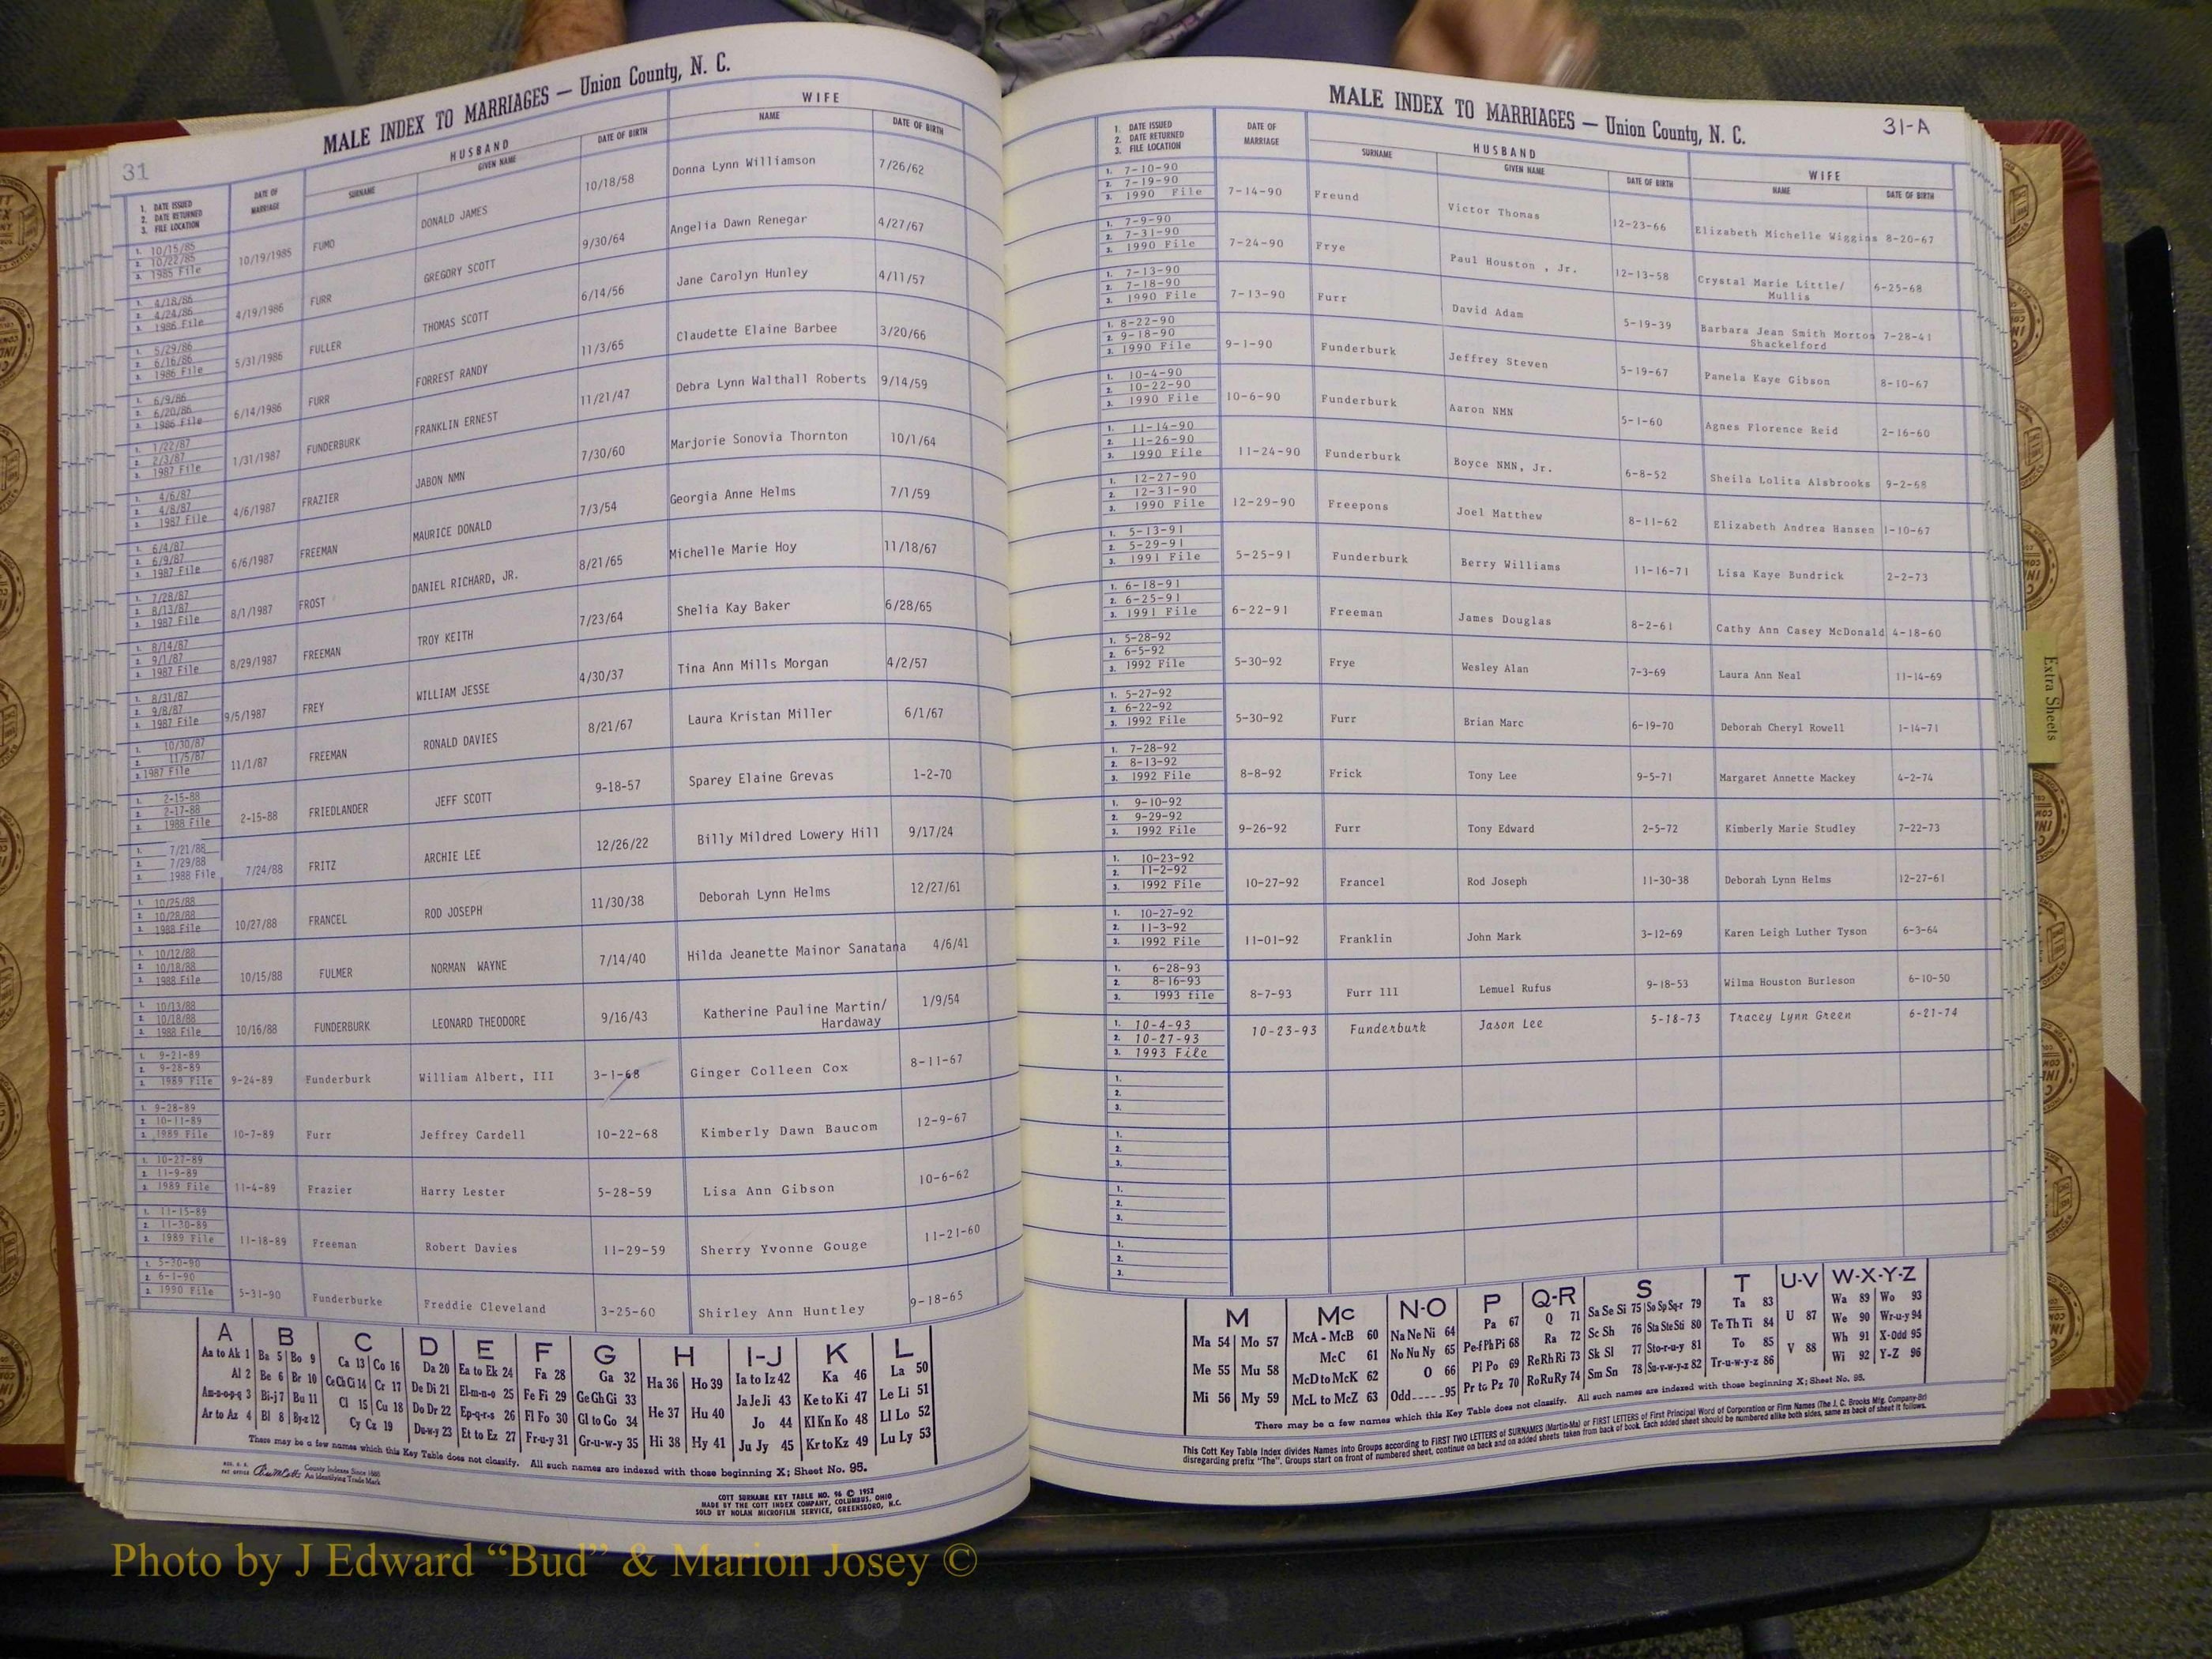 31
MALE INDEX TO MARRIAGES — Union County, N. C.
1. DATE ISSUED 2. DATE RETURNED 3. FILE LOCATION
DATE OF MARRIAGE
HUSBAND
SURNAME GIVEN NAME DATE OF BIRTH
WIFE
NAME DATE OF BIRTH
1. 10/15/85 2. 10/22/85 3. 1985 File 10/19/1985 FUMO DONALD JAMES 10/18/58 Donna Lynn Williamson 7/26/62
1. 4/18/86 2. 4/24/86 3. 1986 File 4/19/1986 FURR GREGORY SCOTT 9/30/64 Angelia Dawn Renegar 4/27/67
1. 5/29/86 2. 6/16/86 3. 1986 File 5/31/1986 FULLER THOMAS SCOTT 6/14/56 Jane Carolyn Hunley 4/11/57
1. 6/9/86 2. 6/20/86 3. 1986 File 6/14/1986 FURR FORREST RANDY 11/3/65 Claudette Elaine Barbee 3/20/66
1. 1/22/87 2. 2/3/87 3. 1987 File 1/31/1987 FUNDERBURK FRANKLIN ERNEST 11/21/47 Debra Lynn Walthall Roberts 9/14/59
1. 4/6/87 2. 4/8/87 3. 1987 File 4/6/1987 FRAZIER JABON NMN 7/30/60 Marjorie Sonovia Thornton 10/1/64
1. 6/4/87 2. 6/9/87 3. 1987 File 6/6/1987 FREEMAN MAURICE DONALD 7/3/54 Georgia Anne Helms 7/1/59
1. 7/28/87 2. 8/13/87 3. 1987 File 8/1/1987 FROST DANIEL RICHARD, JR. 8/21/65 Michelle Marie Hoy 11/18/67
1. 8/14/87 2. 9/1/87 3. 1987 File 8/29/1987 FREEMAN TROY KEITH 7/23/64 Shelia Kay Baker 6/28/65
1. 8/31/87 2. 9/8/87 3. 1987 File 9/5/1987 FREY WILLIAM JESSE 4/30/37 Tina Ann Mills Morgan 4/2/57
1. 10/30/87 2. 11/5/87 3. 1987 File 11/1/87 FREEMAN RONALD DAVIES 8/21/67 Laura Kristan Miller 6/1/67
1. 2-15-88 2. 2-17-88 3. 1988 File 2-15-88 FRIEDLANDER JEFF SCOTT 9-18-57 Sparey Elaine Grevas 1-2-70
1. 7/21/88 2. 7/29/88 3. 1988 File 7/24/88 FRITZ ARCHIE LEE 12/26/22 Billy Mildred Lowery Hill 9/17/24
1. 10/25/88 2. 10/28/88 3. 1988 File 10/27/88 FRANCEL ROD JOSEPH 11/30/38 Deborah Lynn Helms 12/27/61
1. 10/12/88 2. 10/18/88 3. 1988 File 10/15/88 FULMER NORMAN WAYNE 7/14/40 Hilda Jeanette Mainor Sanatana 4/6/41
1. 10/13/88 2. 10/18/88 3. 1988 File 10/16/88 FUNDERBURK LEONARD THEODORE 9/16/43 Katherine Pauline Martin/ Hardaway 1/9/54
1. 9-21-89 2. 9-28-89 3. 1989 File 9-24-89 Funderburk William Albert, III 3-1-68 Ginger Colleen Cox 8-11-67
1. 9-28-89 2. 10-11-89 3. 1989 File 10-7-89 Furr Jeffrey Cardell 10-22-68 Kimberly Dawn Baucom 12-9-67
1. 10-27-89 2. 11-9-89 3. 1989 File 11-4-89 Frazier Harry Lester 5-28-59 Lisa Ann Gibson 10-6-62
1. 11-15-89 2. 11-30-89 3. 1989 File 11-18-89 Freeman Robert Davies 11-29-59 Sherry Yvonne Gouge 11-21-60
1. 5-30-90 2. 6-1-90 3. 1990 File 5-31-90 Funderburke Freddie Cleveland 3-25-60 Shirley Ann Huntley 9-18-65
A B C D E F G H I-J K L
Aa to Ak 1 Ba 5 Bo 9 Ca 13 Co 16 Da 20 Ea to Ek 24 Fa 28 Ga 32 Ha 36 Ho 39 Ia to Iz 42 Ka 46 La 50
Al 2 Be 6 Br 10 Ce Ch Ci 14 Cr 17 De Di 21 El-m-n-o 25 Fe Fi 29 Ge Gh Gi 33 He 37 Hu 40 Ja Je Ji 43 Ke to Ki 47 Le Li 51
Am-n-o-p-q 3 Bi-j 7 Bu 11 Cl 15 Cu 18 Do Dr 22 Ep-q-r-s 26 Fl Fo 30 Gl to Go 34 Jo 44 Kl Kn Ko 48 Ll Lo 52
Ar to Az 4 Bl 8 By-z 12 Cy Cz 19 Du-w-y 23 Et to Ez 27 Fr-u-y 31 Gr-u-w-y 35 Hi 38 Hy 41 Ju Jy 45 Kr to Kz 49 Lu Ly 53
There may be a few names which this Key Table does not classify. All such names are indexed with those beginning X; Sheet No. 95.
REG. U. S. PAT OFFICE
County Indexes Since 1888
An Identifying Trade Mark
COTT SURNAME KEY TABLE NO. 96 © 1952
MADE BY THE COTT INDEX COMPANY, COLUMBUS, OHIO
SOLD BY NOLAN MICROFILM SERVICE, GREENSBORO, N.C.
MALE INDEX TO MARRIAGES — Union County, N. C.
31-A
1. DATE ISSUED 2. DATE RETURNED 3. FILE LOCATION
DATE OF MARRIAGE
HUSBAND
SURNAME GIVEN NAME DATE OF BIRTH
WIFE
NAME DATE OF BIRTH
1. 7-10-90 2. 7-19-90 3. 1990 File 7-14-90 Freund Victor Thomas 12-23-66 Elizabeth Michelle Wiggins 8-20-67
1. 7-9-90 2. 7-31-90 3. 1990 File 7-24-90 Frye Paul Houston , Jr. 12-13-58 Crystal Marie Little/ Mullis 6-25-68
1. 7-13-90 2. 7-18-90 3. 1990 File 7-13-90 Furr David Adam 5-19-39 Barbara Jean Smith Morton Shackelford 7-28-41
1. 8-22-90 2. 9-18-90 3. 1990 File 9-1-90 Funderburk Jeffrey Steven 5-19-67 Pamela Kaye Gibson 8-10-67
1. 10-4-90 2. 10-22-90 3. 1990 File 10-6-90 Funderburk Aaron NMN 5-1-60 Agnes Florence Reid 2-16-60
1. 11-14-90 2. 11-26-90 3. 1990 File 11-24-90 Funderburk Boyce NMN, Jr. 6-8-52 Sheila Lolita Alsbrooks 9-2-68
1. 12-27-90 2. 12-31-90 3. 1990 File 12-29-90 Freepons Joel Matthew 8-11-62 Elizabeth Andrea Hansen 1-10-67
1. 5-13-91 2. 5-29-91 3. 1991 File 5-25-91 Funderburk Berry Williams 11-16-71 Lisa Kaye Bundrick 2-2-73
1. 6-18-91 2. 6-25-91 3. 1991 File 6-22-91 Freeman James Douglas 8-2-61 Cathy Ann Casey McDonald 4-18-60
1. 5-28-92 2. 6-5-92 3. 1992 File 5-30-92 Frye Wesley Alan 7-3-69 Laura Ann Neal 11-14-69
1. 5-27-92 2. 6-22-92 3. 1992 File 5-30-92 Furr Brian Marc 6-19-70 Deborah Cheryl Rowell 1-14-71
1. 7-28-92 2. 8-13-92 3. 1992 File 8-8-92 Frick Tony Lee 9-5-71 Margaret Annette Mackey 4-2-74
1. 9-10-92 2. 9-29-92 3. 1992 File 9-26-92 Furr Tony Edward 2-5-72 Kimberly Marie Studley 7-22-73
1. 10-23-92 2. 11-2-92 3. 1992 File 10-27-92 Francel Rod Joseph 11-30-38 Deborah Lynn Helms 12-27-61
1. 10-27-92 2. 11-3-92 3. 1992 File 11-01-92 Franklin John Mark 3-12-69 Karen Leigh Luther Tyson 6-3-64
1. 6-28-93 2. 8-16-93 3. 1993 file 8-7-93 Furr 111 Lemuel Rufus 9-18-53 Wilma Houston Burleson 6-10-50
1. 10-4-93 2. 10-27-93 3. 1993 File 10-23-93 Funderburk Jason Lee 5-18-73 Tracey Lynn Green 6-21-74
1. 2. 3.
1. 2. 3.
1. 2. 3.
1. 2. 3.
M Mc N-O P Q-R S T U-V W-X-Y-Z
Ma 54 Mo 57 McA - McB 60 Na Ne Ni 64 Pa 67 Q 71 Sa Se Si 75 So Sp Sq-r 79 Ta 83 U 87 Wa 89 Wo 93
Me 55 Mu 58 McC 61 No Nu Ny 65 Pe-f Ph Pi 68 Ra 72 Sc Sh 76 Sta Ste Sti 80 Te Th Ti 84 We 90 Wr-u-y 94
McD to McK 62 O 66 Pl Po 69 Re Rh Ri 73 Sk Sl 77 Sto-r-u-y 81 To 85 V 88 Wh 91 X-Odd 95
Mi 56 My 59 McL to McZ 63 Odd 95 Pr to Pz 70 Ro Ru Ry 74 Sm Sn 78 Su-v-w-y-z 82 Tr-u-w-y-z 86 Wi 92 Y-Z 96
There may be a few names which this Key Table does not classify. All such names are indexed with those beginning X; Sheet No. 95.
This Cott Key Table Index divides Names into Groups according to FIRST TWO LETTERS of SURNAMES (Martin-Ma) or FIRST LETTERS of First Principal Word of Corporation or Firm Names (The J. C. Brooks Mfg. Company-Br)
disregarding prefix "The". Groups start on front of numbered sheet, continue on back and on added sheets taken from back of book. Each added sheet should be numbered alike both sides, same as back of sheet it follows.
Extra Sheets
Photo by J Edward “Bud” & Marion Josey ©